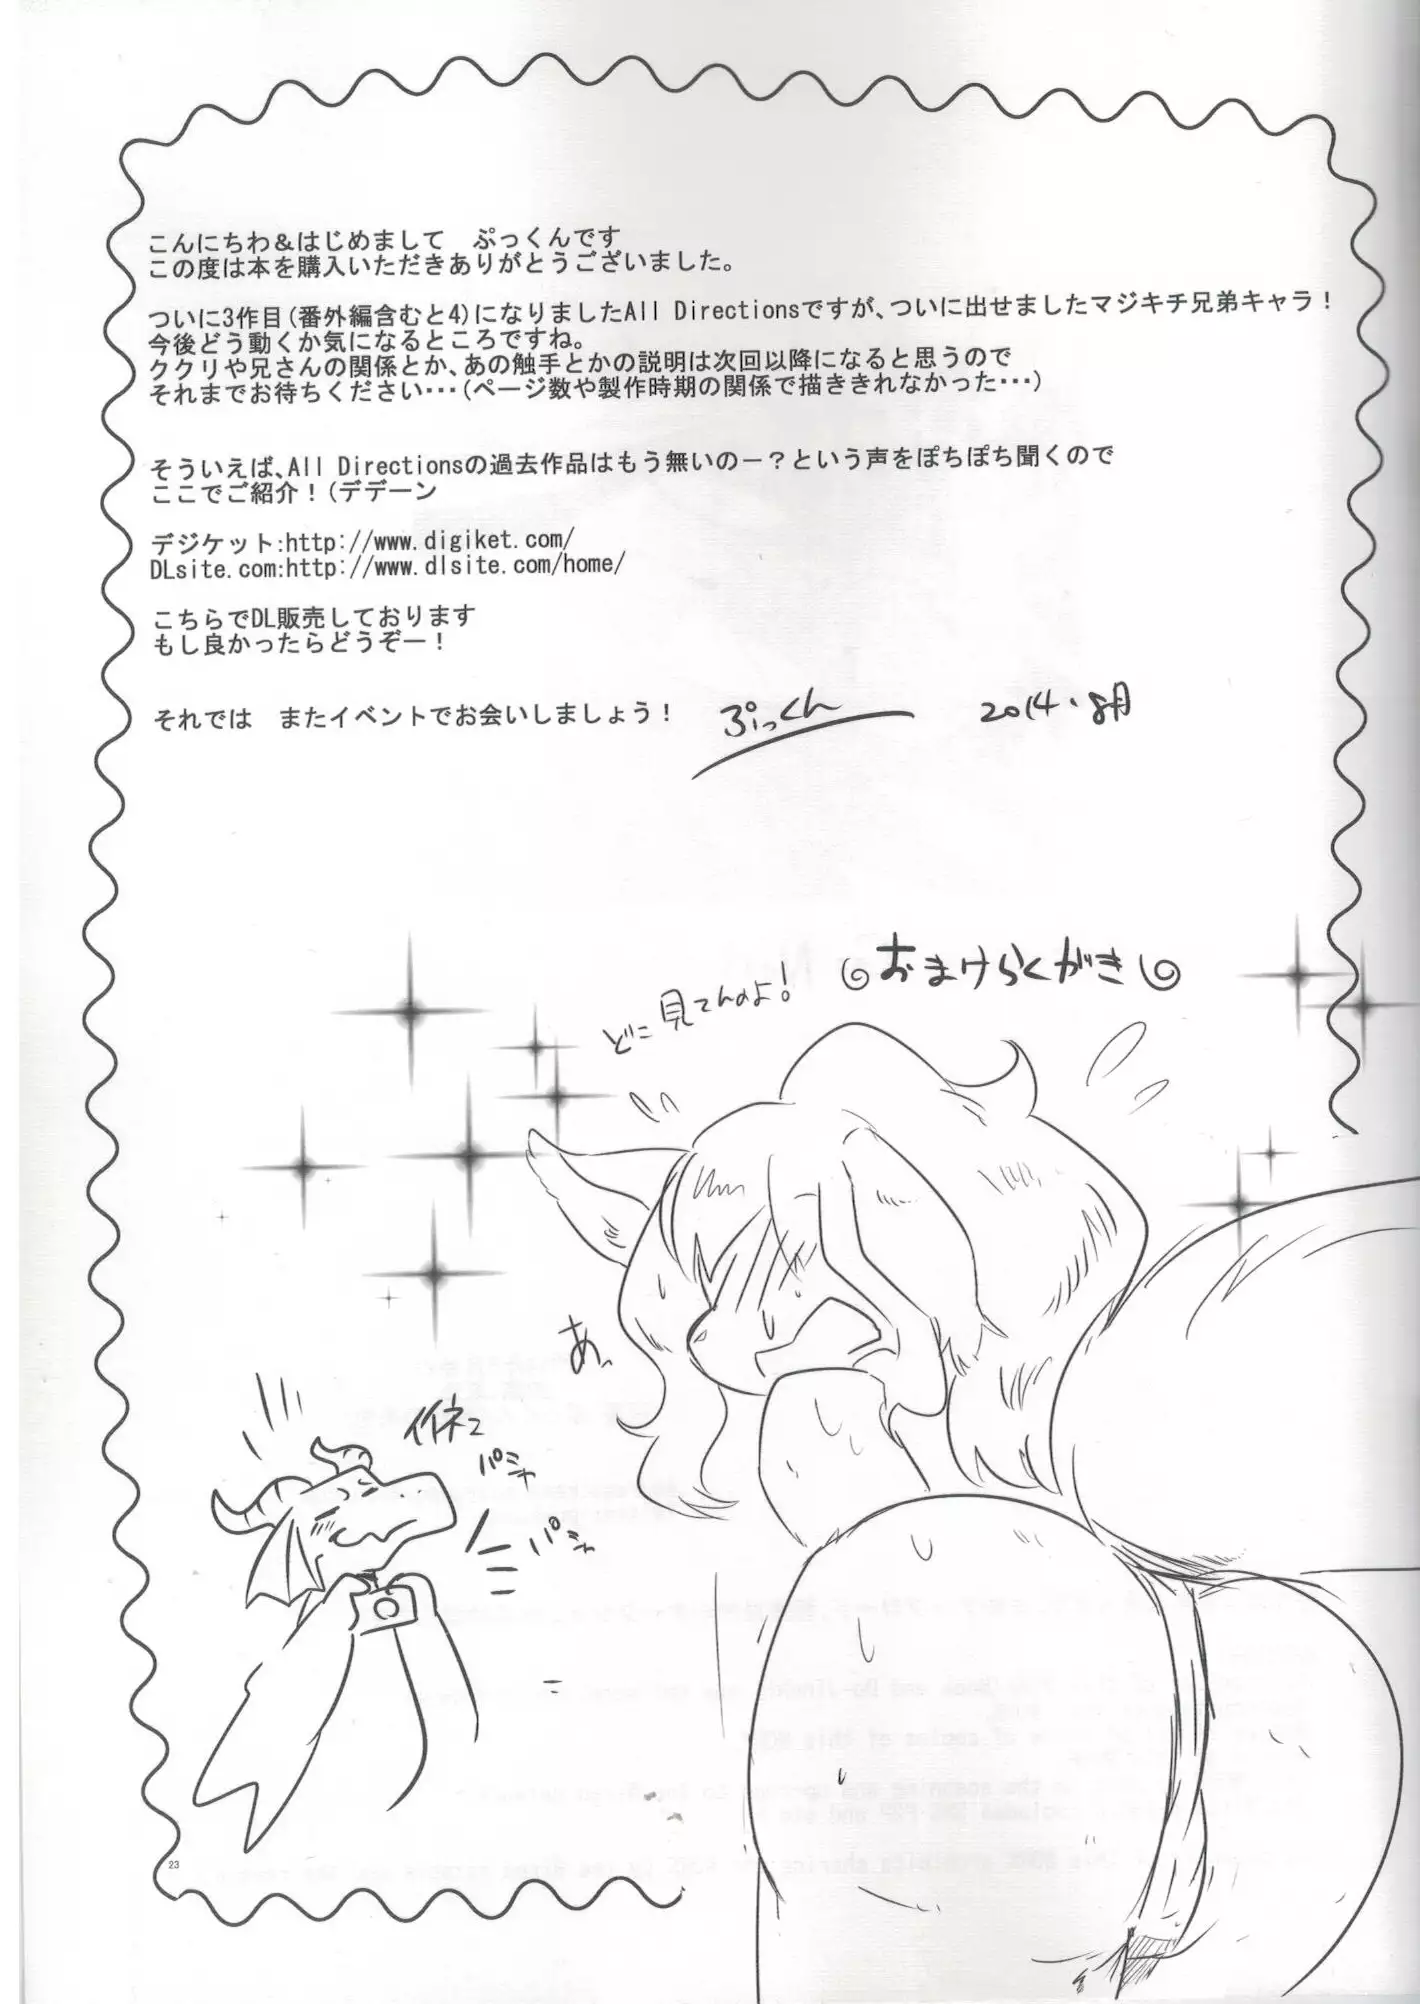 こんにちわ&はじめまして　ぷっくんです
この度は本を購入いただきありがとうございました。
ついに3作目(番外編含むと4)になりましたAll Directionsですが、ついに出せましたマジキチ兄弟キャラ!
今後どう動くか気になるところですね。
ククリや兄さんの関係とか、あの触手とかの説明は次回以降になると思うので
それまでお待ちください・・・(ページ数や製作時期の関係で描ききれなかった・・・)
そういえば、All Directionsの過去作品はもう無いのー?という声をぽちぽち聞くので
ここでご紹介!(デデーン
デジケット:http://www.digiket.com/
DLsite.com:http://www.dlsite.com/home/
こちらでDL販売しております
もし良かったらどうぞー!
それでは　またイベントでお会いしましょう!
ぷっくん
2014.8月
おまけらくがき
どこ見てんのよ!
あっ
イイネェ
パシャ
パシャ
23